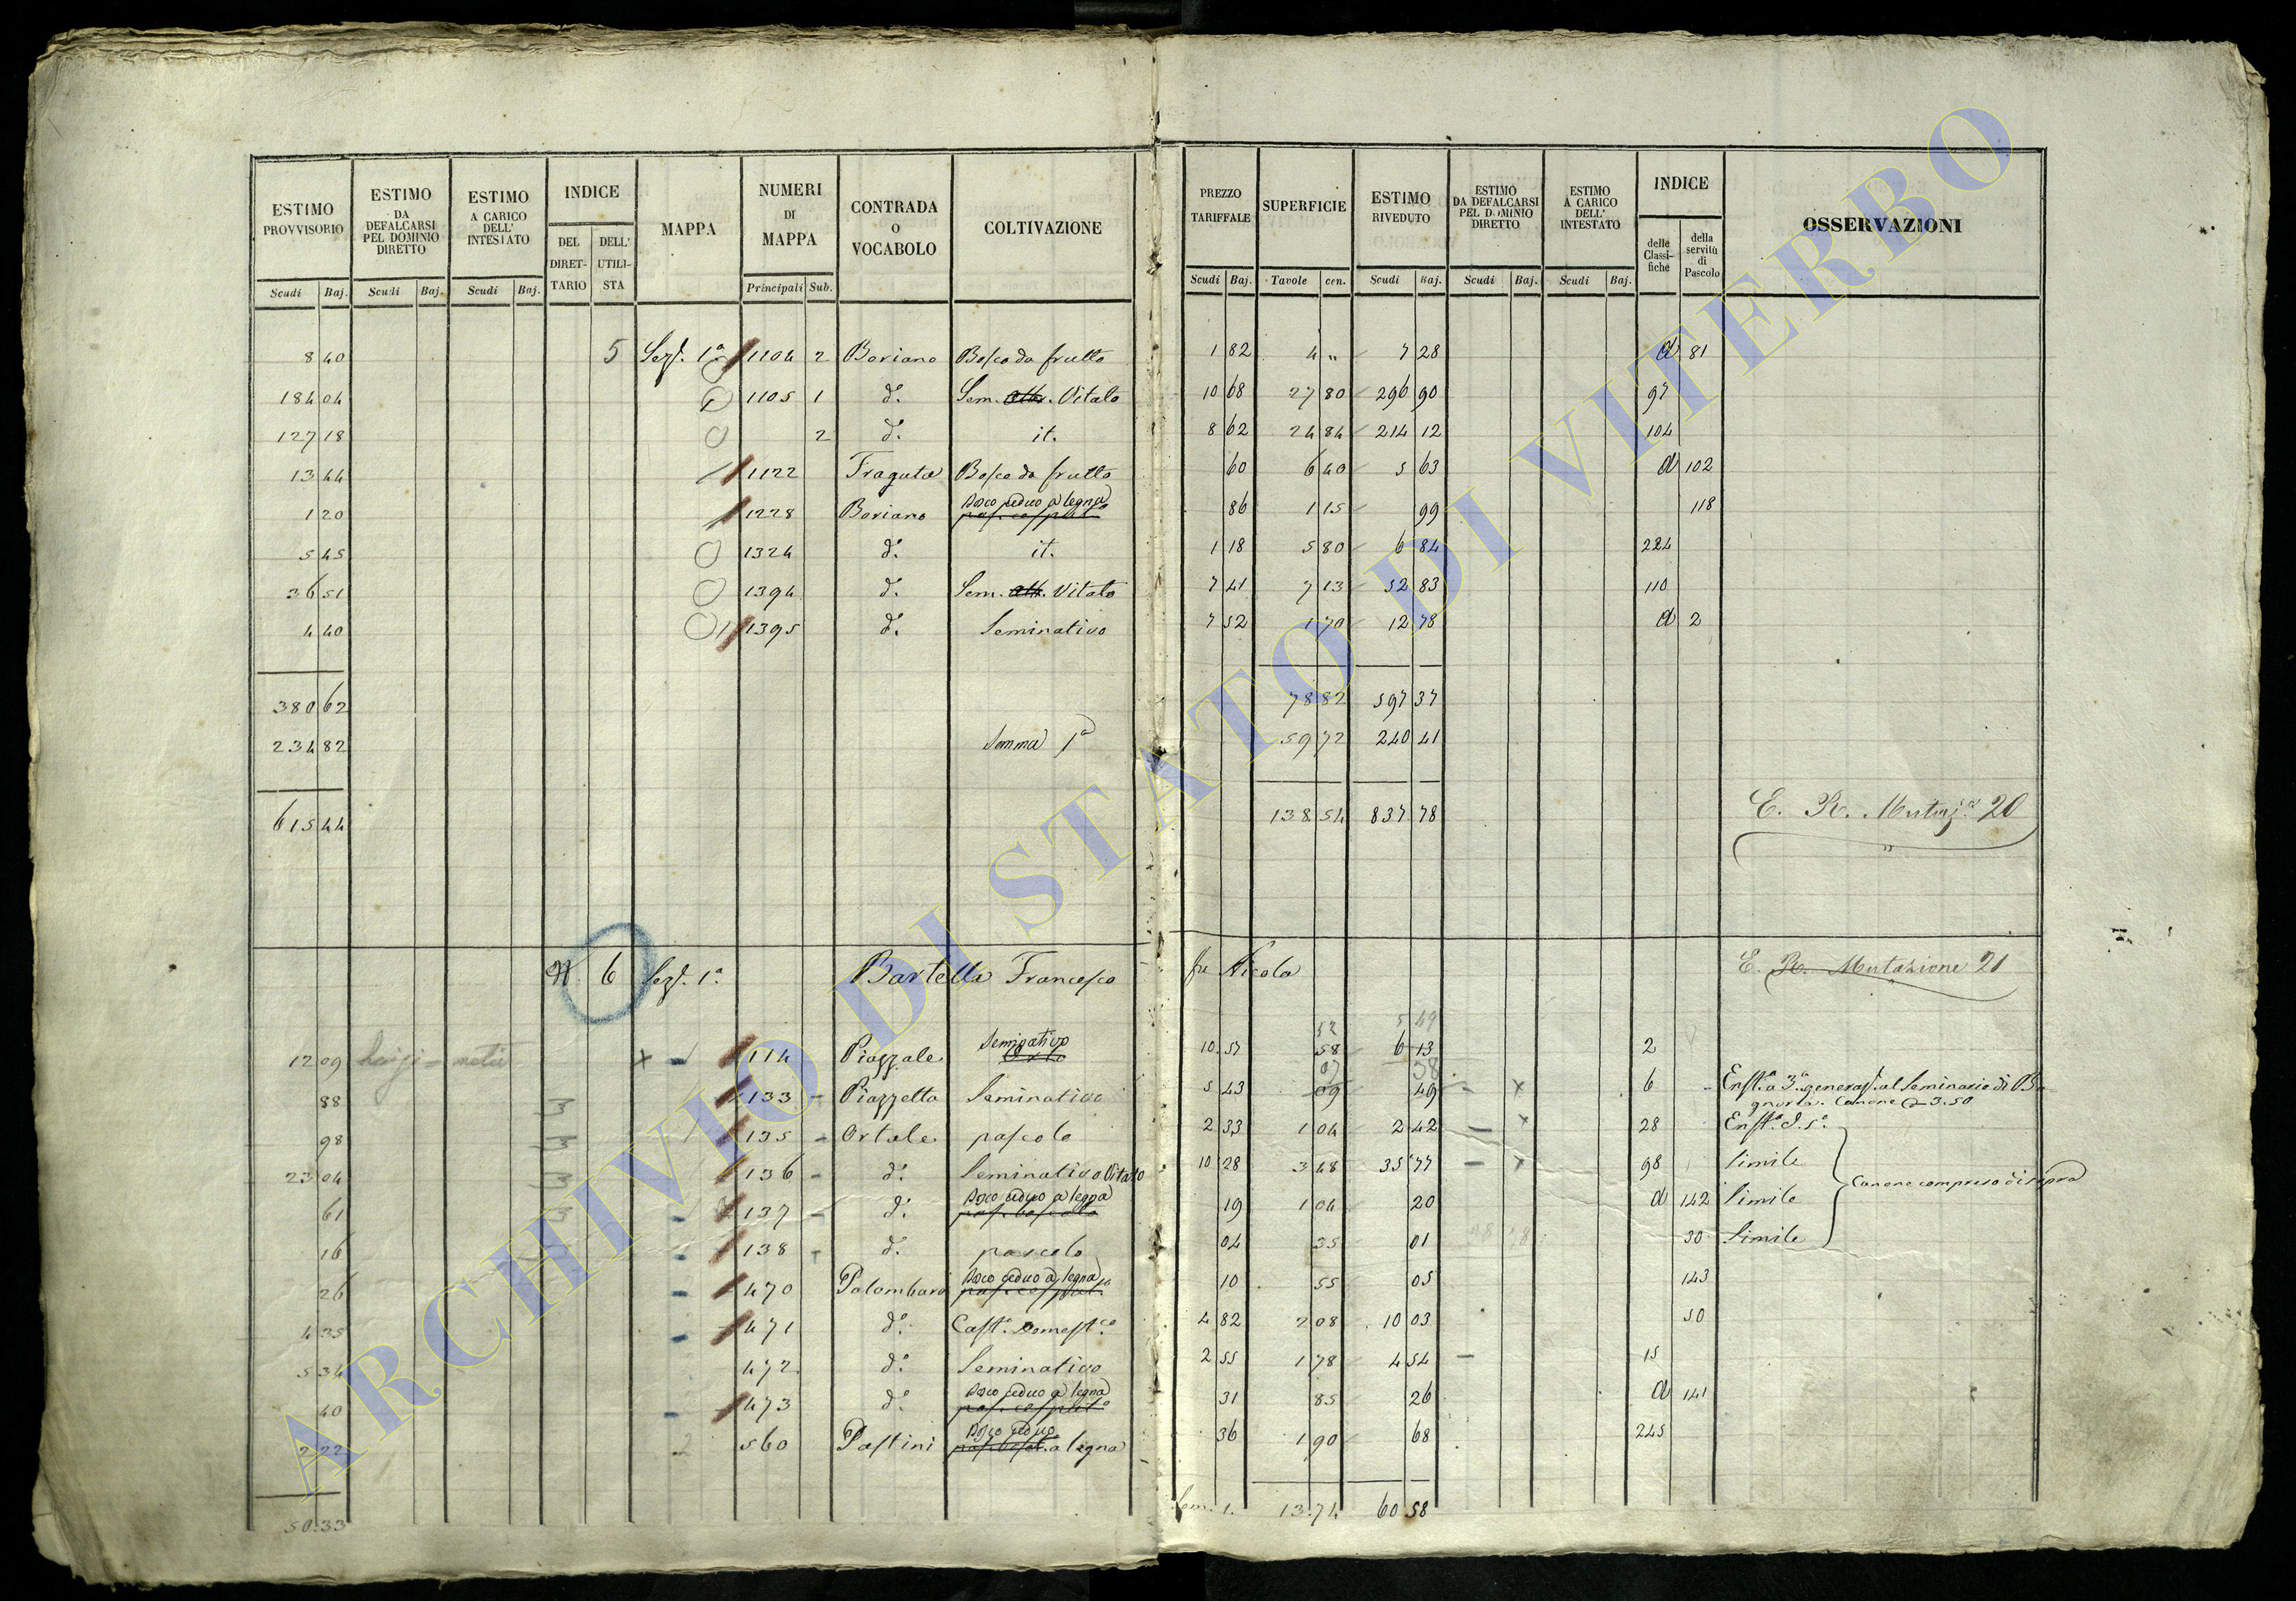 ESTIMO PROVVISORIO Scudi Baj. | ESTIMO DA DEFALCARSI PEL DOMINIO DIRETTO Scudi Baj. | ESTIMO A CARICO DELL' INTESTATO Scudi Baj. | INDICE DEL DIRET-TARIO DELL' UTILI-STA | MAPPA | NUMERI DI MAPPA Principali Sub. | CONTRADA O VOCABOLO | COLTIVAZIONE | PREZZO TARIFFALE Scudi Baj. | SUPERFICIE Tavole cen. | ESTIMO RIVEDUTO Scudi Baj. | ESTIMO DA DEFALCARSI PEL DOMINIO DIRETTO Scudi Baj. | ESTIMO A CARICO DELL' INTESTATO Scudi Baj. | INDICE delle Classi-fiche della servitù di Pascolo | OSSERVAZIONI
8 40 5 Sez. 1a 1104 2 Boriano Bosco da frutto 1 82 4 „ 7 28 a 81
184 04 1105 1 d.o Sem. Vitato 10 68 27 80 296 90 97
127 18 2 d.o it. 8 62 24 84 214 12 104
13 44 1122 Fraguta Bosco da frutto 60 6 40 5 63 a 102
1 20 1228 Boriano Bosco ceduo a legna 86 1 15 99 118
5 45 1324 d.o it. 1 18 5 80 6 84 224
36 51 1394 d.o Sem. Vitato 7 41 7 13 52 83 110
4 40 1395 d.o Seminativo 7 52 1 70 12 78 a 2
380 62 78 82 597 37
234 82 Somma 1a 59 72 240 41
615 44 138 54 837 78 E. R. Mutaz.e 20
N. 6 Sez. 1a Bartella Francesco fu Nicola E. R. Mutazione 21
52 5 49
12 09 114 Piazzale Seminativo Orto 10 57 58 6 13 2
07 38
88 133 Piazzetta Seminativo 5 43 09 49 6 Enft.a 3.a generaz. al Seminario di Ba-
gnorea. Canone 3.50
98 135 Ortale pascolo 2 33 1 04 2 42 28 Enft.a d. s.a
23 04 136 d.o Seminativo Vitato 10 28 3 48 35 77 98 Simile
Canone compreso di sopra
61 137 d.o Bosco ceduo a legna 19 1 04 20 a 142 Simile
16 138 d.o pascolo 04 35 01 30 Simile
26 470 Palombaro Bosco ceduo a legna 10 55 05 143
4 35 471 d.o Cast.o Domest.co 4 82 2 08 10 03 50
5 34 472 d.o Seminativo 2 55 1 78 4 54 15
40 473 d.o Bosco ceduo a legna 31 85 26 a 141
2 22 560 Pastini Bosco ceduo a legna 36 1 90 68 245
50 33 Som. 1. 13 74 60 58
ARCHIVIO DI STATO DI VITERBO